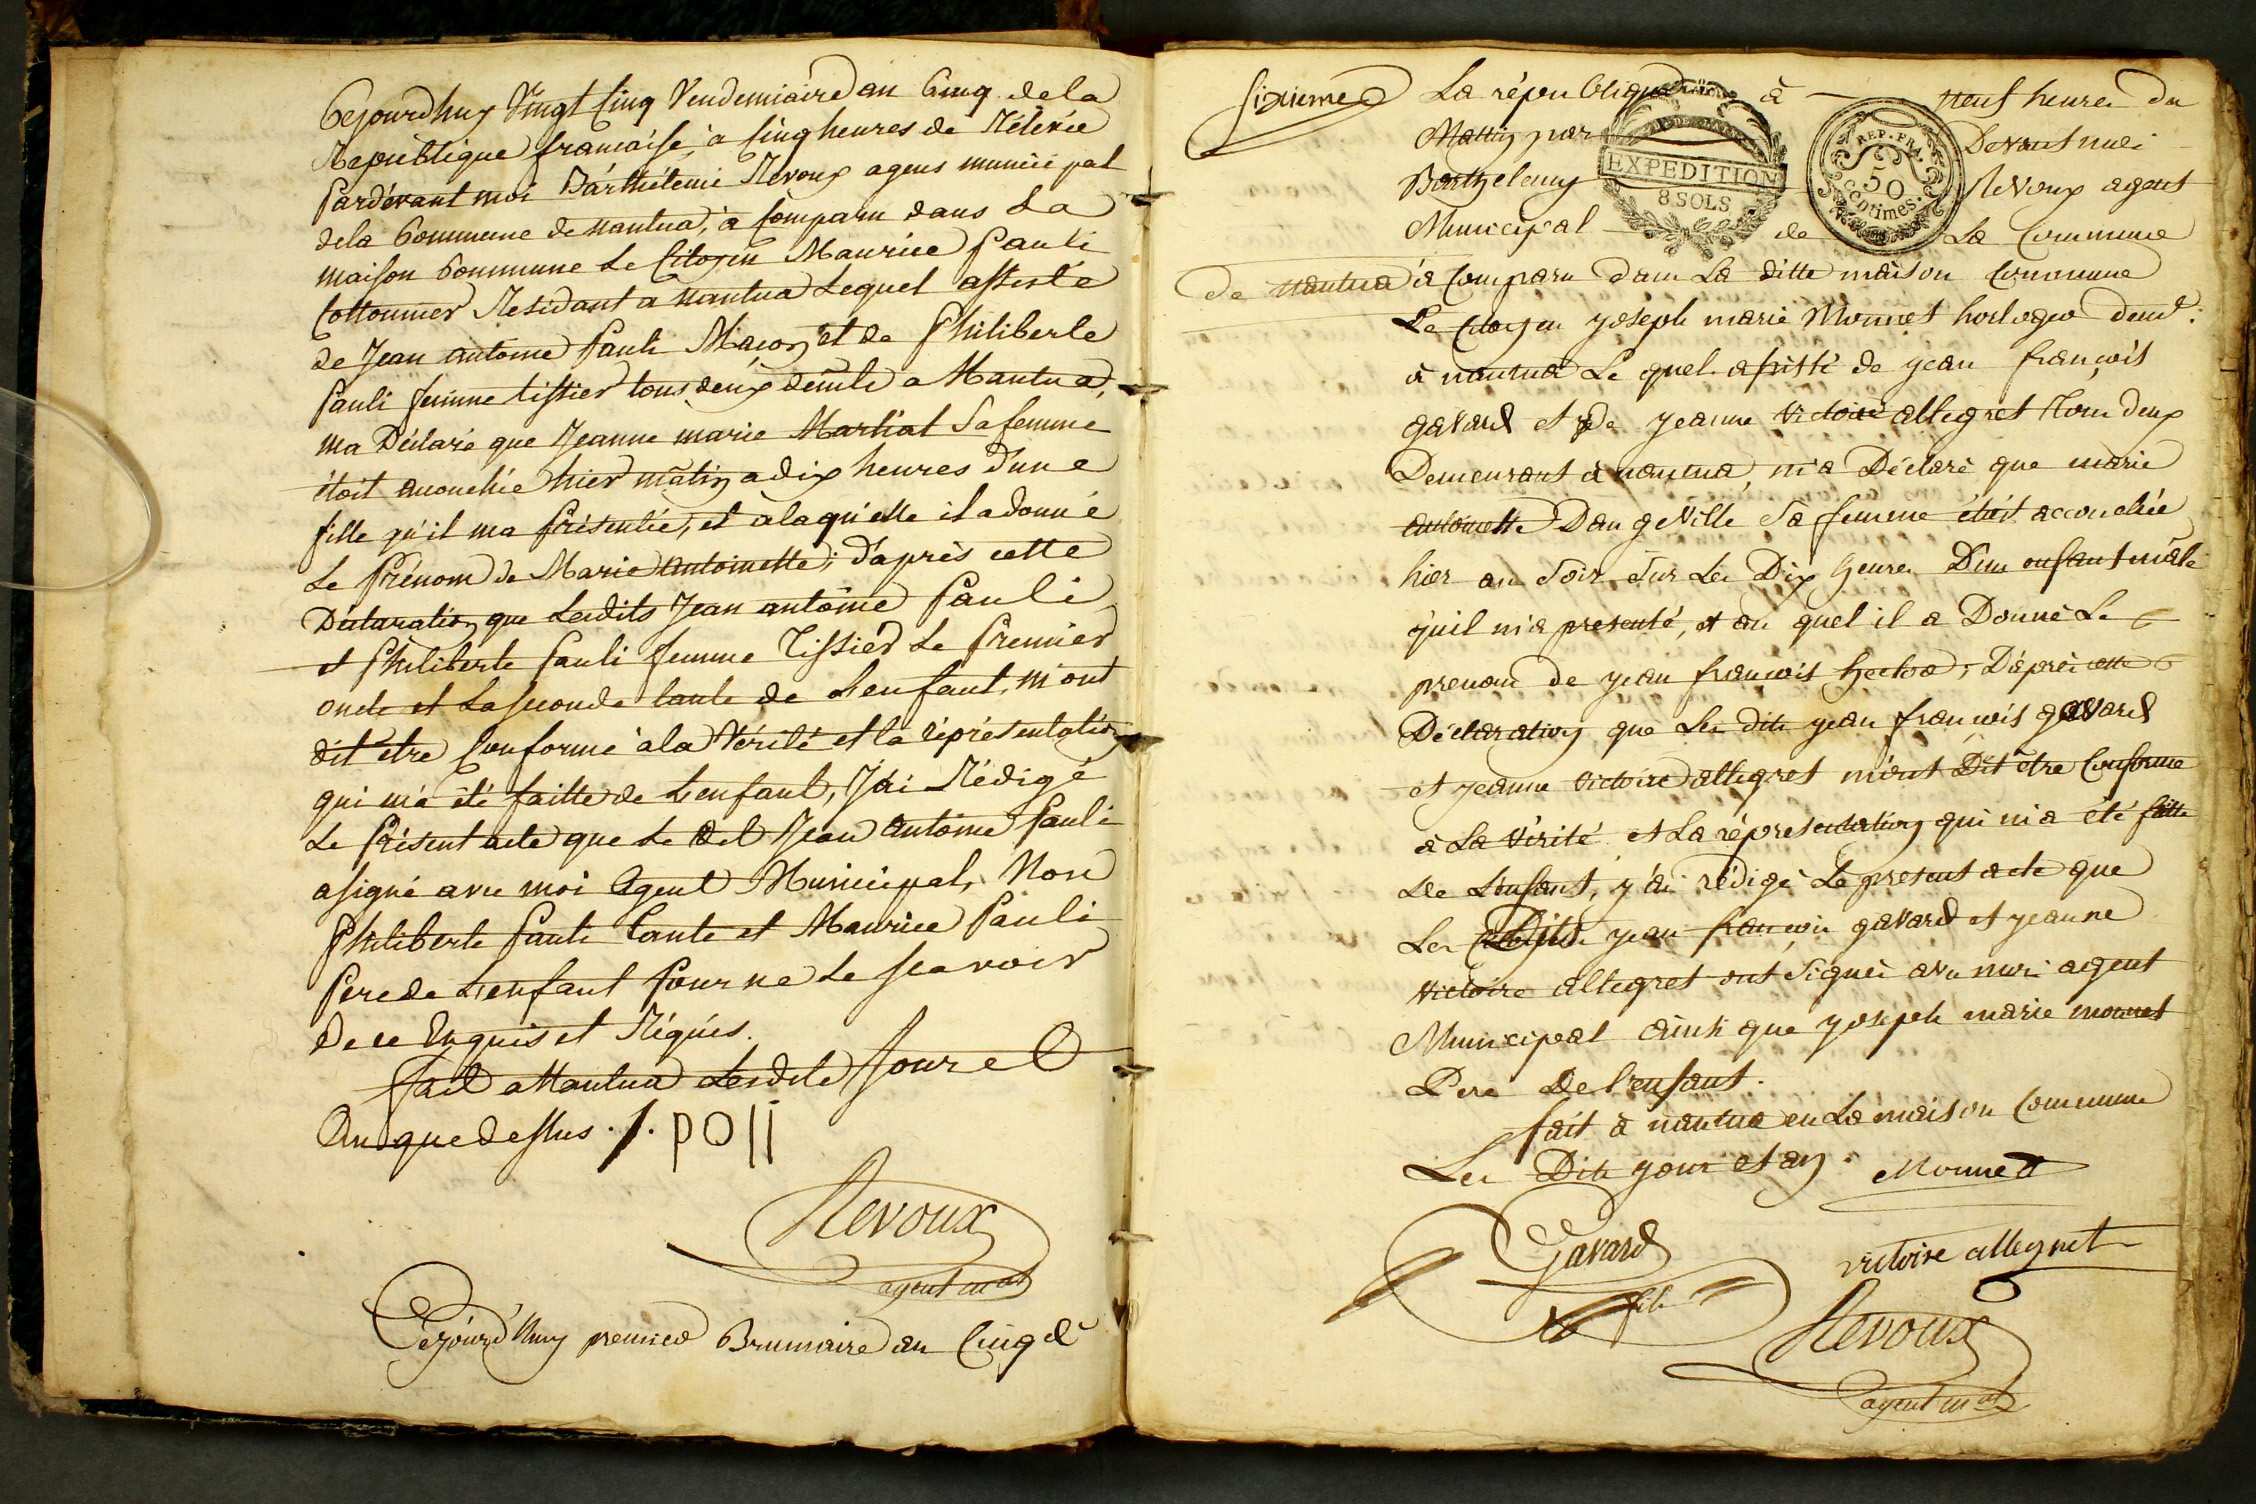 Cejourdhuy Vingt Cinq Vendemiaire an Cinq de la
Republique francaise, à Cinq heures de Relevée
Pardevant moi Barthélemi Revoux agens municipal
dela Commune de nantua, à Comparu dans La
maison Commune Le Citoyen Maurice Pauli
Cottonnier Residant a nantua Lequel assisté
de Jean antoine Pauli Macon et de Philiberte
Pauli femme tissier tous deux demlt a Nantua,
ma Déclaré que Jeanne marie Martial Sa femme
étoit accouchée hier matin a dix heures d'une
fille qu'il ma Présentée, et a laqu'elle il a donné
Le Prénom de Marie antoinette; d'après cette
Déclaration que Lesdits Jean antoine Pauli
et Philiberte Pauli femme Tissier Le Premier
oncle et La seconde tante de L'enfant, m'ont
dit etre Conforme à la Vérité et la représentation
qui m'a été faitte de L'enfant, J'ai Rédigé
Le Présent acte que Le dit Jean antoine Pauli
a signé avec moi agent Municipal, Non
Philiberte Pauli tante et Maurice Pauli
Pere de L'enfant Pour ne Le scavoir
De ce Enquis et Réquis.
fait a Nantua Lesdits Jour et
An que dessus ./. poli
Revoux
agent mal
Cejourd'huy premier Brumaire an Cinq de
Sixieme
La république à neuf heures du
Mattin par Devant moi
Barthelemy Revoux agent
Municipal de La Commune
EXPEDITION
8 SOLS
REP. FRA.
50
centimes.
De nantua à Comparu dans La ditte maison Commune
Le Citoyen yoseph marie Monnet horloger demt.
à nantua Le quel assisté de yean françois
gavard et de yeanne victoire allegret Tous deux
Demeurant à nantua, m'a Déclaré que marie
antoinette Dangeville Sa femme étoit accouchée
hier au Soir Sur Les Dix heures D'un enfant mâle
qu'il m'a presenté, et au quel il a Donné Le
prenom de yean francois hector; D'après cette
Déclaration que Les dits yean françois gavard
et yeanne victoire allegret m'ont Dit être Conforme
à La vérité et La répresentation qui m'a été faitte
De L'enfant, y'ai rédigé Le present acte que
Les Dits yean francois gavard et yeanne
victoire allegret ont Signé avec moi agent
Municipal ainsi que yoseph marie monnet
Pere De l'enfant.
fait à nantua en La maison Commune
Les Dits your et an. Monnet
Gavard
fils
victoire allegret
Revoux
agent mal